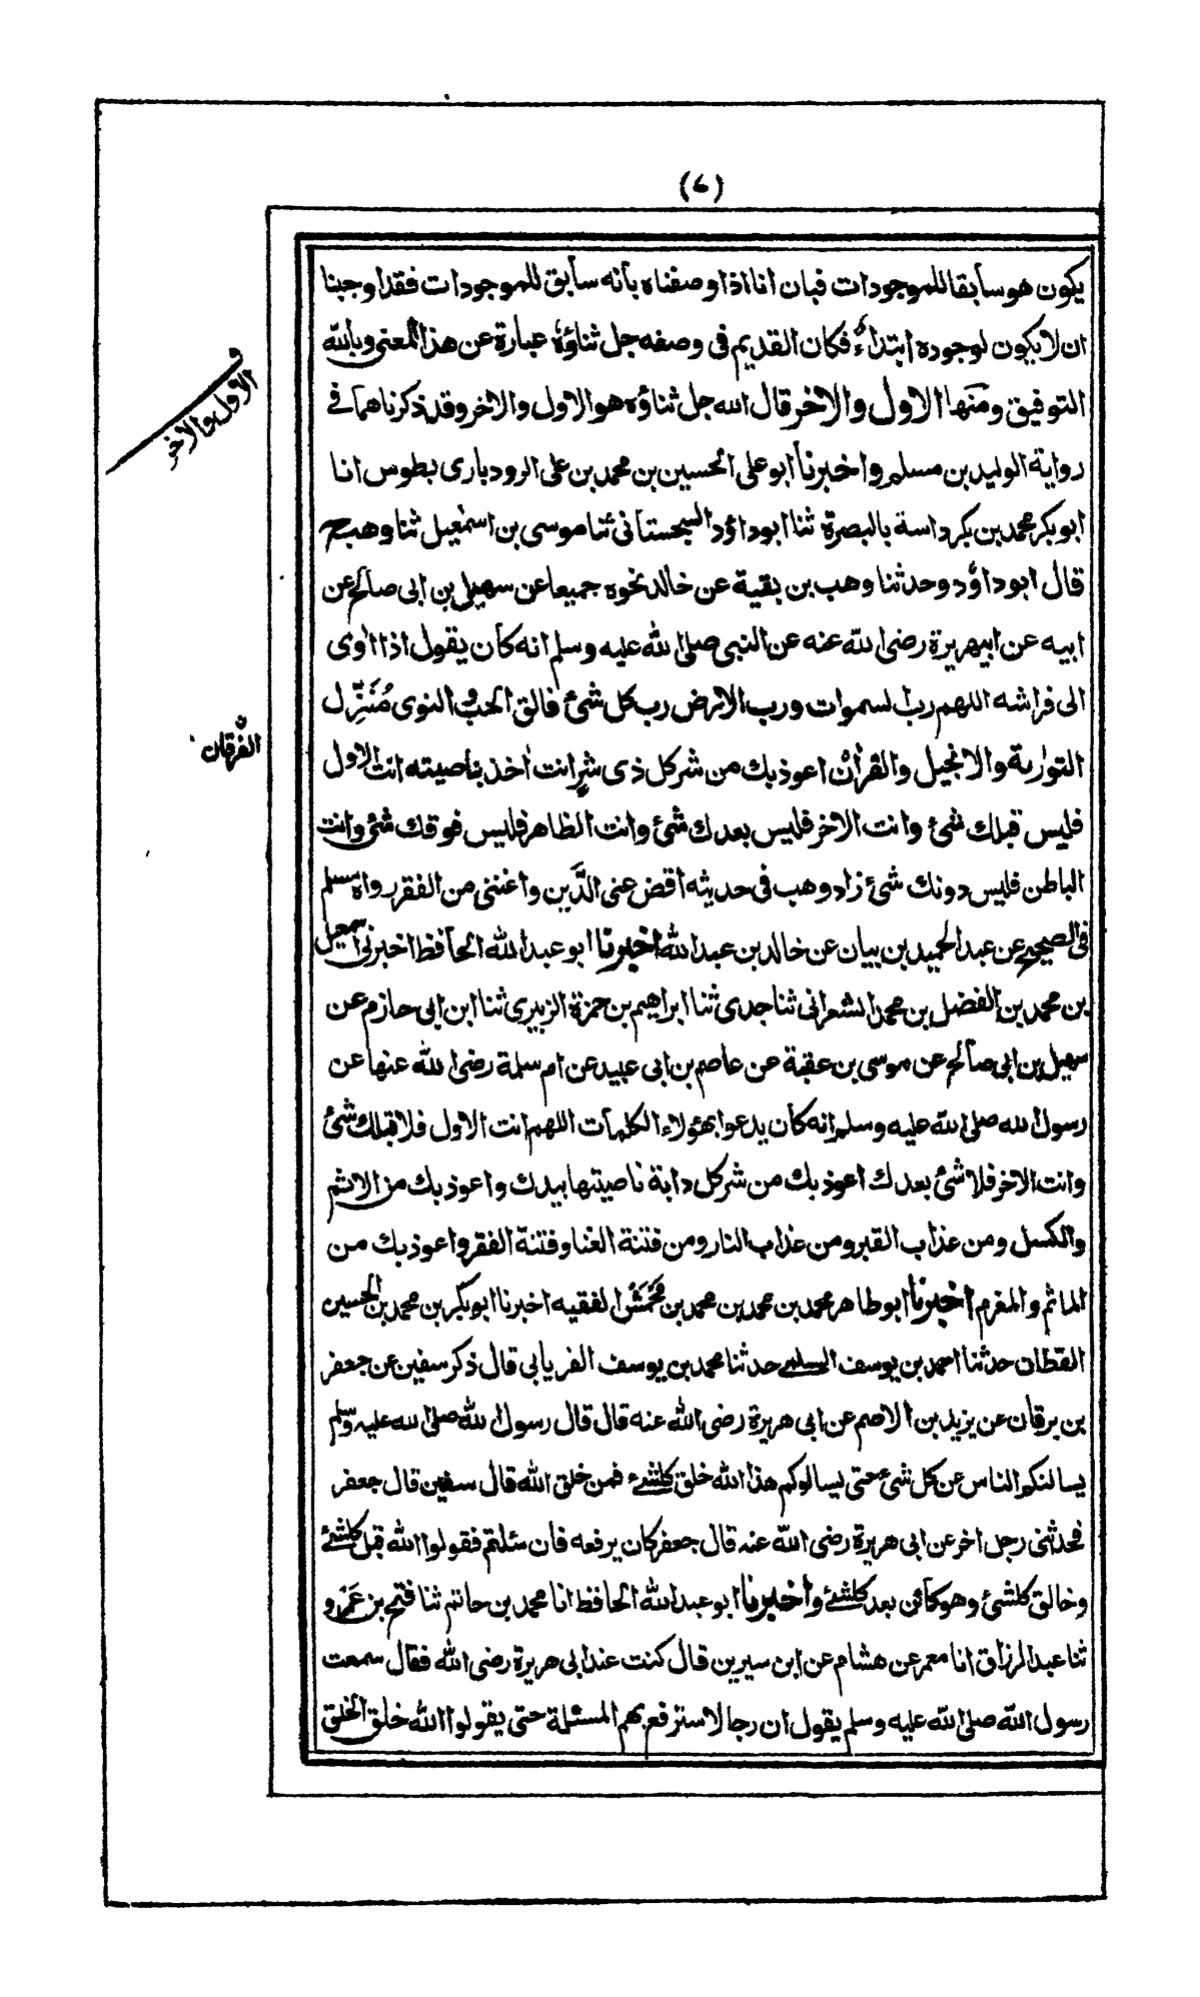 (٧)
يكون هو سابقا للموجودات فبان انا اذا وصفناه بأنه سابق للموجودات فقد اوجبنا
ان لا يكون لوجوده ابتداء فكان القديم فى وصفه جل ثناؤه عبارة عن هذا المعنى وبالله
التوفيق ومنها الاول والاخر قال الله جل ثناؤه هو الاول والاخر وقد ذكرناهما فى
الاول والاخر
رواية الوليد بن مسلم واخبرنا ابو على الحسين بن محمد بن على الرودبارى بطوس انا
ابو بكر محمد بن بكر داسة بالبصرة ثنا ابوداؤد السجستانى ثنا موسى بن اسمٰعيل ثنا وهب ح
قال ابوداؤد وحدثنا وهب بن بقية عن خالد نحوه جميعا عن سهيل بن ابى صالح عن
ابيه عن ابيهريرة رضى الله عنه عن النبى صلى الله عليه وسلم انه كان يقول اذا اوى
الى فراشه اللهم رب السموات ورب الارض رب كل شئ فالق الحب والنوى مُنَزِّل
التورٰىة والانجيل والقرأن اعوذ بك من شر كل ذى شر انت اٰخذ بناصيته انت الاول
الفرقان
فليس قبلك شئ وانت الاخر فليس بعدك شئ وانت الظاهر فليس فوقك شئ وانت
الباطن فليس دونك شئ زاد وهب فى حديثه اقض عنى الدَّين واغننى من الفقر رواه مسلم
فى الصحيح عن عبد الحميد بن بيان عن خالد بن عبد الله اخبرنا ابو عبد الله الحافظ اخبرنى اسمعيل
بن محمد بن الفضل بن محمد الشعرانى ثنا جدى ثنا ابراهيم بن حمزة الزبيرى ثنا ابن ابى حازم عن
سهيل بن ابى صالح عن موسى بن عقبة عن عاصم بن ابى عبيد عن ام سلمة رضى الله عنها عن
رسول الله صلى الله عليه وسلم انه كان يدعوا بهؤلاء الكلمات اللهم انت الاول فلا قبلك شئ
وانت الاخر فلا شئ بعدك اعوذ بك من شر كل دابة ناصيتها بيدك واعوذ بك من الاثم
والكسل ومن عذاب القبر ومن عذاب النار ومن فتنة الغنا وفتنة الفقر واعوذ بك من
الماثم والمغرم اخبرنا ابو طاهر محمد بن محمد بن محمد بن مَحْمَش الفقيه اخبرنا ابو بكر بن محمد بن الحسين
القطان حدثنا احمد بن يوسف السلمى حدثنا محمد بن يوسف الفريابى قال ذكر سفين عن جعفر
بن برقان عن يزيد بن الاصم عن ابى هريرة رضى الله عنه قال قال رسول الله صلى الله عليه وسلم
يسالنكم الناس عن كل شئ حتى يسالوكم هذا الله خلق كلشئ فمن خلق الله قال سفين قال جعفر
فحدثنى رجل اخر عن ابى هريرة رضى الله عنه قال جعفر كان يرفعه فان سئلتم فقولوا الله قبل كلشئ
وخالق كلشئ وهو كائن بعد كلشئ واخبرنا ابو عبد الله الحافظ انا محمد بن حاتم ثنا فتح بن عَمرو
ثنا عبد الرزاق انا معمر عن هشام عن ابن سيرين قال كنت عند ابى هريرة رضى الله فقال سمعت
رسول الله صلى الله عليه وسلم يقول ان رجالا سترفع بهم المسئلة حتى يقولوا الله خلق الخلق